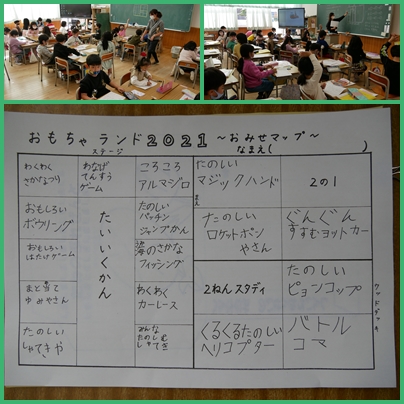 おもちゃランド2021～おみせマップ～
ステージ
なまえ(　　　　)
わくわく
さかなつり
わなげ
てんすう
ゲーム
ころころ
アルマジロ
たのしい
マジックハンド
2の1
まえ
おもしろい
ボウリング
たいいくかん
たのしい
パッチン
ジャンプかん
たのしい
ロケットポン
やさん
ぐんぐん
すすむヨットカー
おもしろい
はたけゲーム
海のさかな
フィッシング
まと当て
ゆみやさん
わくわく
カーレース
2ねんスタディ
たのしい
ピョンコップ
ウッドデッキ
たのしい
しゃてきや
みんな
たのしむ
しゃてき
くるくるたのしい
ヘリコプター
バトル
コマ